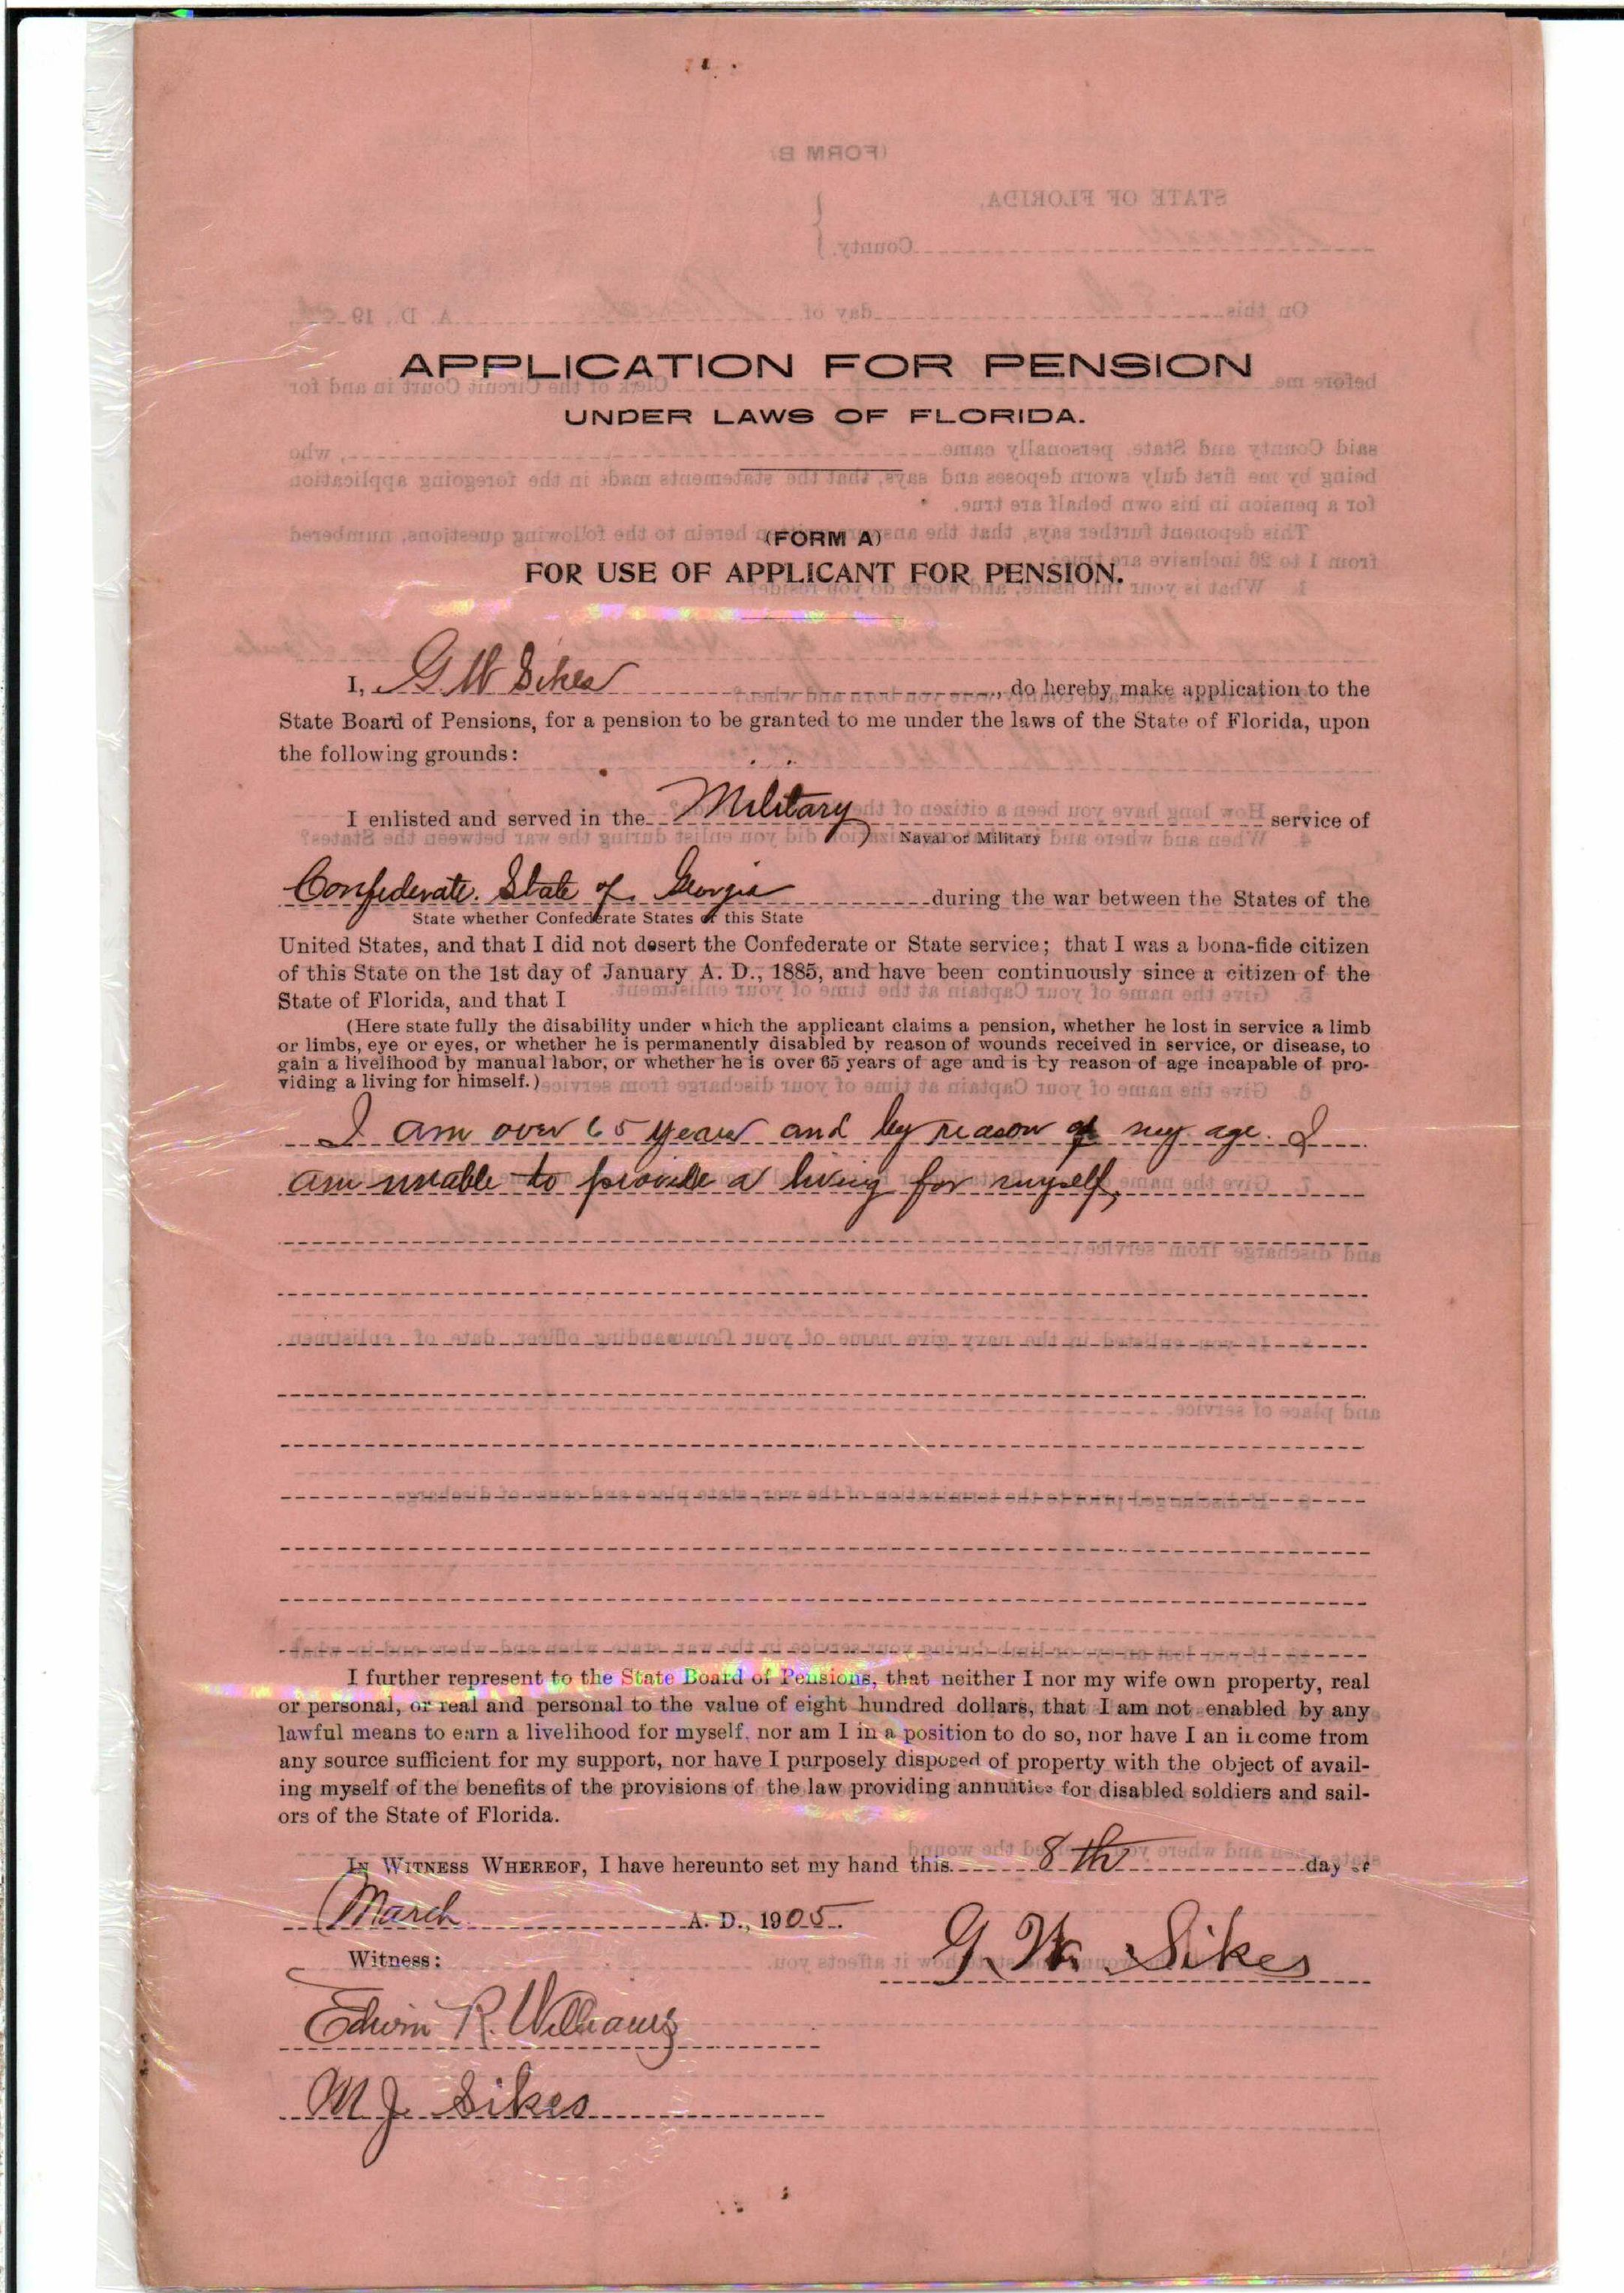 APPLICATION FOR PENSION
UNDER LAWS OF FLORIDA.
(FORM A)
FOR USE OF APPLICANT FOR PENSION.
I, G W Sikes, do hereby make application to the
State Board of Pensions, for a pension to be granted to me under the laws of the State of Florida, upon
the following grounds:
I enlisted and served in the Military service of
Naval or Military
Confederate. State of Georgia during the war between the States of the
State whether Confederate States or this State
United States, and that I did not desert the Confederate or State service; that I was a bona-fide citizen
of this State on the 1st day of January A. D., 1885, and have been continuously since a citizen of the
State of Florida, and that I
(Here state fully the disability under which the applicant claims a pension, whether he lost in service a limb
or limbs, eye or eyes, or whether he is permanently disabled by reason of wounds received in service, or disease, to
gain a livelihood by manual labor, or whether he is over 65 years of age and is by reason of age incapable of pro-
viding a living for himself.)
I am over 65 years and by reason of my age. I
am unable to provide a living for myself,
I further represent to the State Board of Pensions, that neither I nor my wife own property, real
or personal, or real and personal to the value of eight hundred dollars, that I am not enabled by any
lawful means to earn a livelihood for myself, nor am I in a position to do so, nor have I an income from
any source sufficient for my support, nor have I purposely disposed of property with the object of avail-
ing myself of the benefits of the provisions of the law providing annuities for disabled soldiers and sail-
ors of the State of Florida.
IN WITNESS WHEREOF, I have hereunto set my hand this 8th day of
March A. D., 1905.
Witness:
G. W. Sikes
Edwin R. Williams
M J Sikes